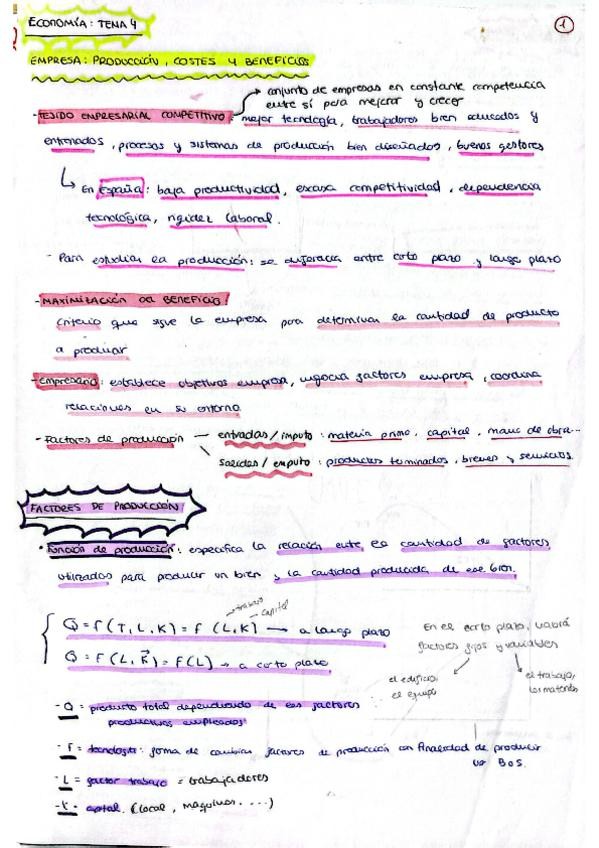 ECONOMÍA: TEMA 4
1
EMPRESA: PRODUCCIÓN, COSTES Y BENEFICIOS
conjunto de empresas en constante competencia
entre sí para mejorar y crecer
- TEJIDO EMPRESARIAL COMPETITIVO: mejor tecnología, trabajadores bien educados y
entrenados, procesos y sistemas de producción bien diseñados, buenos gestores
En España: baja productividad, escasa competitividad, dependencia
tecnológica, rigidez laboral.
- Para estudiar la producción: se diferencia entre corto plazo y largo plazo
- MAXIMIZACIÓN DEL BENEFICIO:
Criterio que sigue la empresa para determinar la cantidad de producto
a producir
- Empresario: establece objetivos empresa, negocia factores empresa, coordina
relaciones en su entorno
- Factores de producción
entradas/imputo: materia prima, capital, mano de obra...
salidas/emputo: productos terminados, bienes y servicios.
FACTORES DE PRODUCCIÓN
• Función de producción: especifica la relación entre la cantidad de factores
utilizados para producir un bien y la cantidad producida de ese bien.
trabajo
capital
Q = F(T, L, K) = F (L, K) → a largo plazo
Q = F(L, K̄) = F(L) → a corto plazo
En el corto plazo, habrá
factores fijos y variables
el edificio,
el equipo
el trabajo,
los materiales
- Q = producto total dependiendo de los factores
productivos empleados
- T = tecnología: forma de combinar factores de producción con finalidad de producir
un BoS.
- L = factor trabajo = trabajadores
- K = capital. (local, máquinas....)